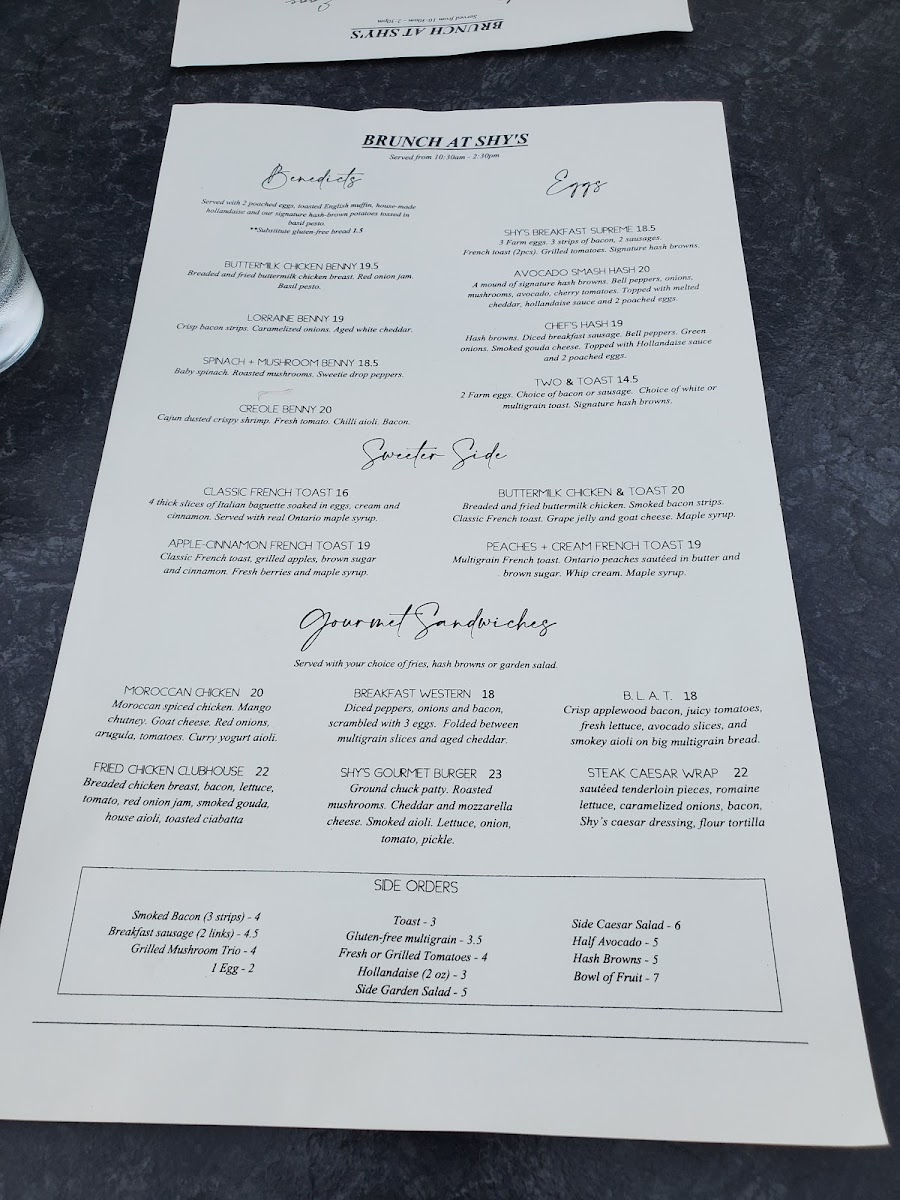 BRUNCH AT SHY'S
Served from 10:30am - 2:30pm
BRUNCH AT SHY'S
Served from 10:30am - 2:30pm
Benedicts
Served with 2 poached eggs, toasted English muffin, house-made
hollandaise and our signature hash-brown potatoes tossed in
basil pesto.
**Substitute gluten-free bread 1.5
BUTTERMILK CHICKEN BENNY 19.5
Breaded and fried buttermilk chicken breast. Red onion jam.
Basil pesto.
LORRAINE BENNY 19
Crisp bacon strips. Caramelized onions. Aged white cheddar.
SPINACH + MUSHROOM BENNY 18.5
Baby spinach. Roasted mushrooms. Sweetie drop peppers.
CREOLE BENNY 20
Cajun dusted crispy shrimp. Fresh tomato. Chilli aioli. Bacon.
Eggs
SHY'S BREAKFAST SUPREME 18.5
3 Farm eggs, 3 strips of bacon, 2 sausages.
French toast (2pcs). Grilled tomatoes. Signature hash browns.
AVOCADO SMASH HASH 20
A mound of signature hash browns. Bell peppers, onions,
mushrooms, avocado, cherry tomatoes. Topped with melted
cheddar, hollandaise sauce and 2 poached eggs.
CHEF'S HASH 19
Hash browns. Diced breakfast sausage. Bell peppers. Green
onions. Smoked gouda cheese. Topped with Hollandaise sauce
and 2 poached eggs.
TWO & TOAST 14.5
2 Farm eggs. Choice of bacon or sausage. Choice of white or
multigrain toast. Signature hash browns.
Sweeter Side
CLASSIC FRENCH TOAST 16
4 thick slices of Italian baguette soaked in eggs, cream and
cinnamon. Served with real Ontario maple syrup.
APPLE-CINNAMON FRENCH TOAST 19
Classic French toast, grilled apples, brown sugar
and cinnamon. Fresh berries and maple syrup.
BUTTERMILK CHICKEN & TOAST 20
Breaded and fried buttermilk chicken. Smoked bacon strips.
Classic French toast. Grape jelly and goat cheese. Maple syrup.
PEACHES + CREAM FRENCH TOAST 19
Multigrain French toast. Ontario peaches sautéed in butter and
brown sugar. Whip cream. Maple syrup.
Gourmet Sandwiches
Served with your choice of fries, hash browns or garden salad.
MOROCCAN CHICKEN 20
Moroccan spiced chicken. Mango
chutney. Goat cheese. Red onions,
arugula, tomatoes. Curry yogurt aioli.
BREAKFAST WESTERN 18
Diced peppers, onions and bacon,
scrambled with 3 eggs. Folded between
multigrain slices and aged cheddar.
B. L. A. T. 18
Crisp applewood bacon, juicy tomatoes,
fresh lettuce, avocado slices, and
smokey aioli on big multigrain bread.
FRIED CHICKEN CLUBHOUSE 22
Breaded chicken breast, bacon, lettuce,
tomato, red onion jam, smoked gouda,
house aioli, toasted ciabatta
SHY'S GOURMET BURGER 23
Ground chuck patty. Roasted
mushrooms. Cheddar and mozzarella
cheese. Smoked aioli. Lettuce, onion,
tomato, pickle.
STEAK CAESAR WRAP 22
sautéed tenderloin pieces, romaine
lettuce, caramelized onions, bacon,
Shy's caesar dressing, flour tortilla
SIDE ORDERS
Smoked Bacon (3 strips) - 4
Breakfast sausage (2 links) - 4.5
Grilled Mushroom Trio - 4
1 Egg - 2
Toast - 3
Gluten-free multigrain - 3.5
Fresh or Grilled Tomatoes - 4
Hollandaise (2 oz) - 3
Side Garden Salad - 5
Side Caesar Salad - 6
Half Avocado - 5
Hash Browns - 5
Bowl of Fruit - 7